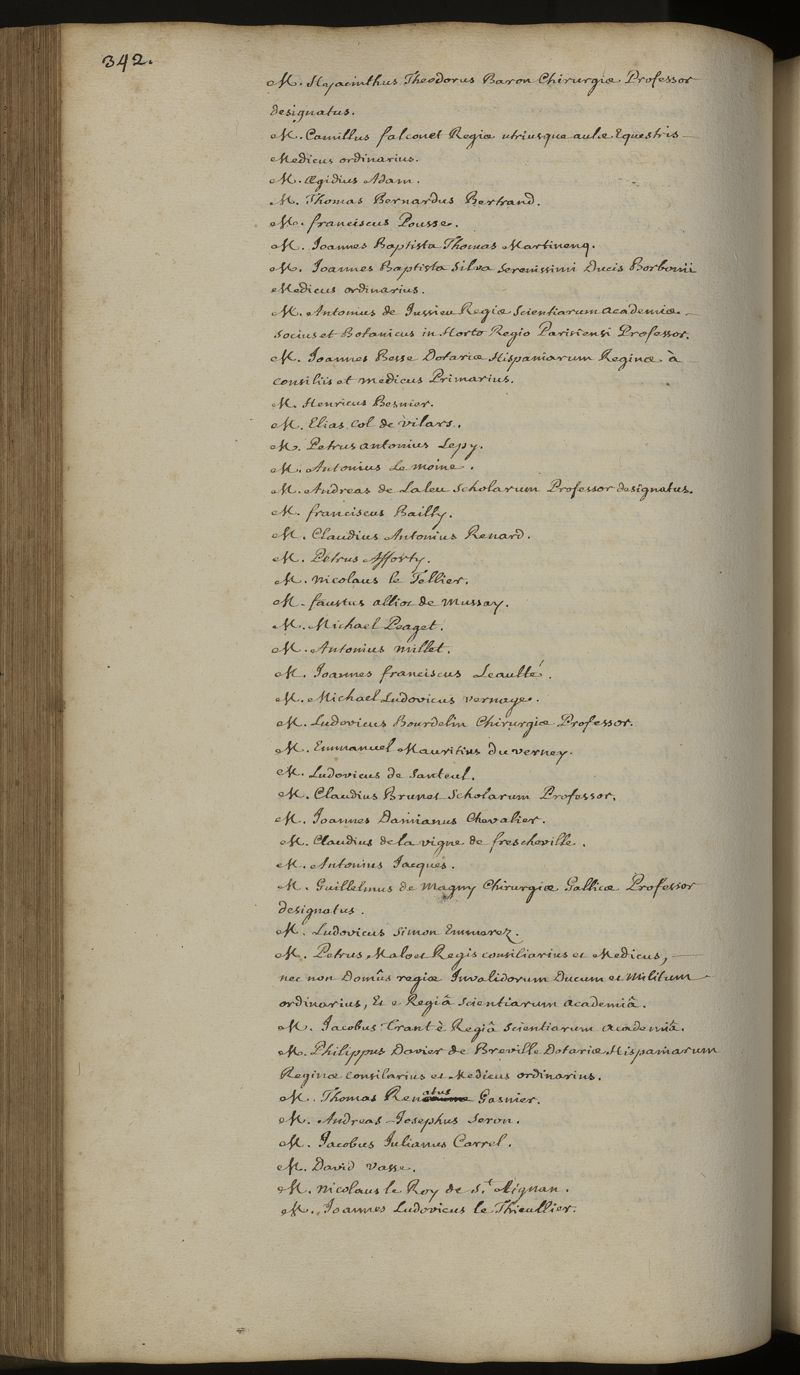 342.
M. Hyacinthus Theodorus Baron Chirurgiæ Professor
designatus.
M. Camillus falconet Regiæ utriusque aulæ Equestris
Medicus ordinarius.
M. Ægidius Adam.
M. Thomas Bernardus Bertrand.
M. franciscus Pousse.
M. Joannes Baptista Thomas Martinenq.
M. Joannes Baptista Silva Serenissimi Ducis Borbonii
Medicus ordinarius.
M. Antonius de Jussieu Regiæ Scientiarum academiæ
Socius et Botanicus in Horto Regio Parisiensi Professor.
M. Joannes Besse Dotariæ Hispaniarum Reginæ à
consiliis et medicus Primarius.
M. Henricus Besnier.
M. Elias Col de vilars.
M. Petrus antonius Lepy.
M. Antonius Le moine.
M. Andreas de Laleu Scholarum Professor designatus.
M. franciscus Bailly.
M. Claudius Antonius Renard.
M. Petrus Afforty.
M. nicolaus le Tellier.
M. faustus alliot de mussay.
M. Michael Peaget.
M. Antonius millet.
M. Joannes franciscus Leaulté.
M. Michael Ludovicus vernage.
M. Ludovicus Bourdelin Chirurgiæ Professor.
M. Emmanuel Mauritius du verney.
M. Ludovicus de Santeul.
M. Claudius Brunet Scholarum Professor.
M. Joannes Damianus Chevalier.
M. Claudius de la vigne de frescheville.
M. Antonius Jacques.
M. Guillelmus de magny Chirurgiæ Gallicæ Professor
designatus.
M. Ludovicus Simon Emmerez.
M. Petrus Maloet Regis consiliarius et Medicus,
nec non Domûs regiæ Invalidorum Ducum et Militum
ordinarius, Et e Regiâ Scientiarum academiâ.
M. Jacobus Grant è Regiâ Scientiarum academiâ.
M. Philippus Davier de Breville Dotariæ Hispaniarum
Reginæ consiliarius et Medicus ordinarius.
M. Thomas Renatus Gasnier.
M. Andreas Josephus Seron.
M. Jacobus Julianus Carrel.
M. David vasse.
M. nicolaus le Roy de St. Aignan.
M. Joannes Ludovicus le Thieullier.